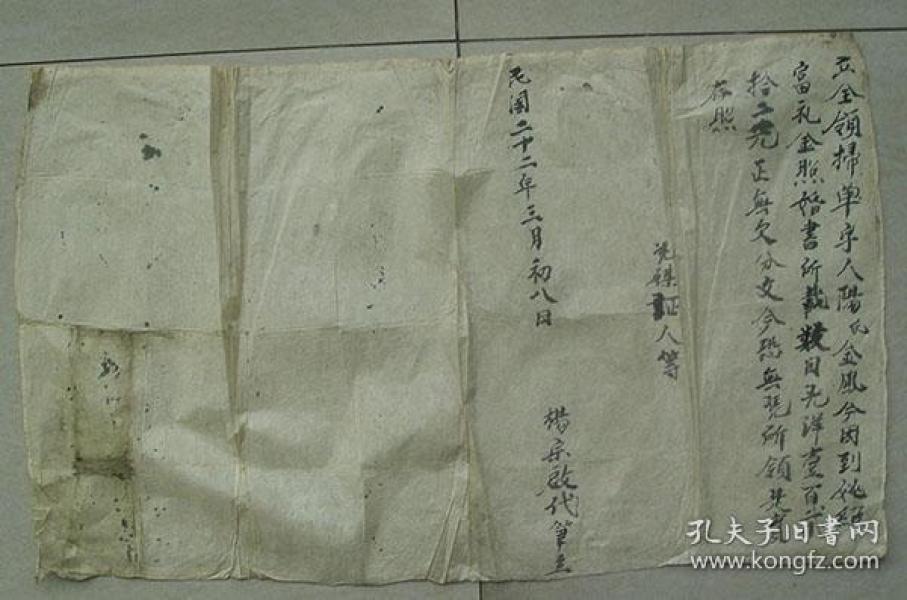 立全領掃單字人陽氏金鳳今因到姚紹
富礼金照婚書所載數目光洋壹百
拾二元正無欠分文今恐無凭所領是實
存照
凭媒証人等
民國二十二年三月初八日
楷宗啟代筆立
孔夫子旧书网
www.kongfz.com